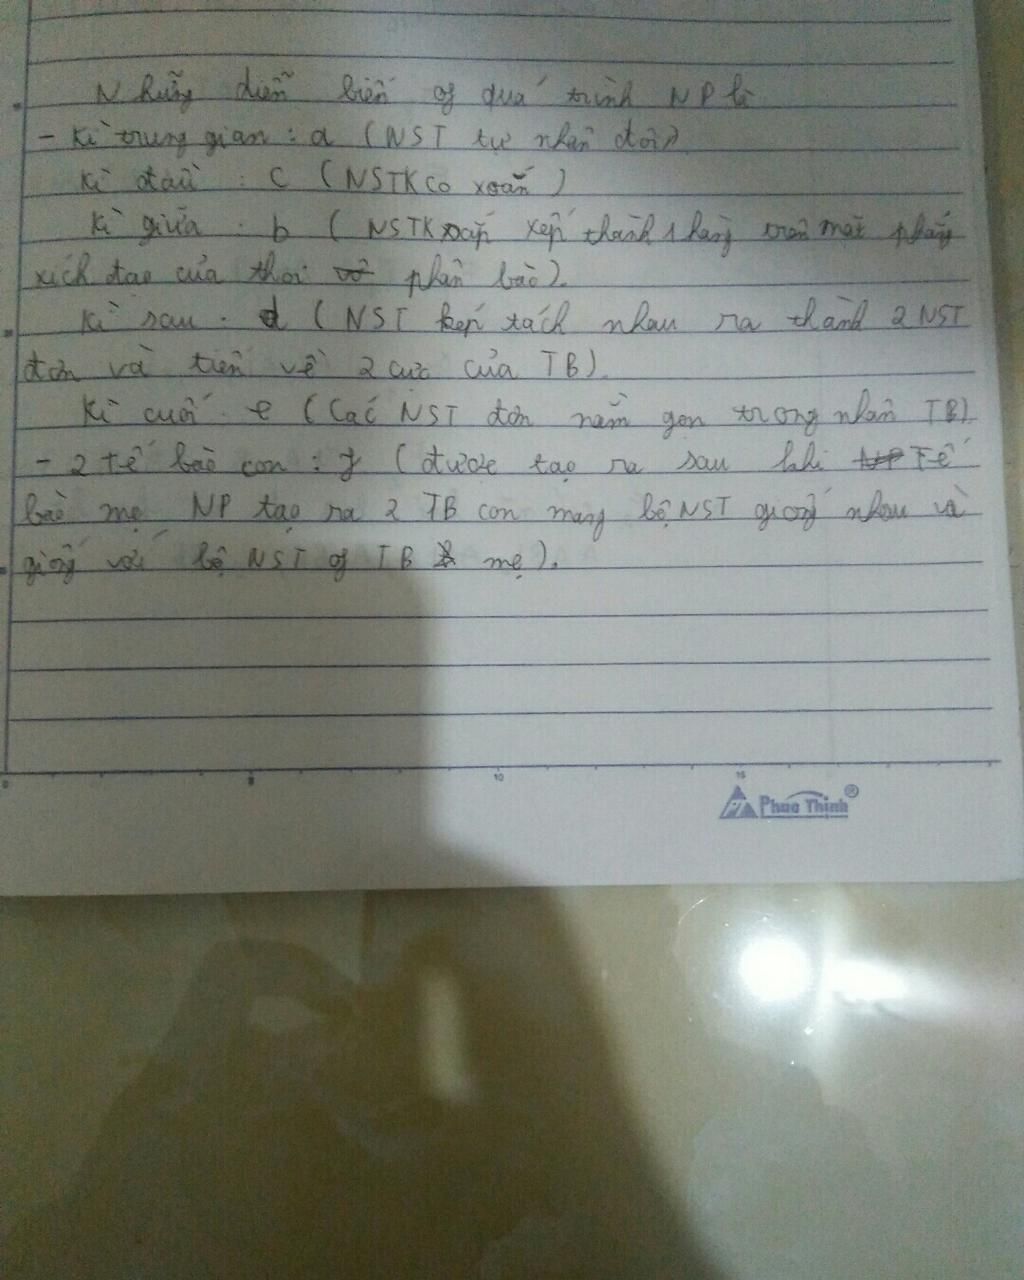 Những diễn biến of quá trình NP là
- Kì trung gian : a (NST tự nhân đôi)
Kì đầu : c (NSTK co xoắn)
Kì giữa : b (NSTK xoắn xếp thành 1 hàng trên mặt phẳng
xích đạo của thoi phân bào).
Kì sau : d (NST kép tách nhau ra thành 2 NST
đơn và tiến về 2 cực của TB).
Kì cuối : e (Các NST đơn nằm gọn trong nhân TB)
- 2 tế bào con : f (được tạo ra sau khi Tế
bào mẹ NP tạo ra 2 TB con mang bộ NST giống nhau và
giống với bộ NST of TB mẹ).
0 5 10 15
Phuc Thịnh®